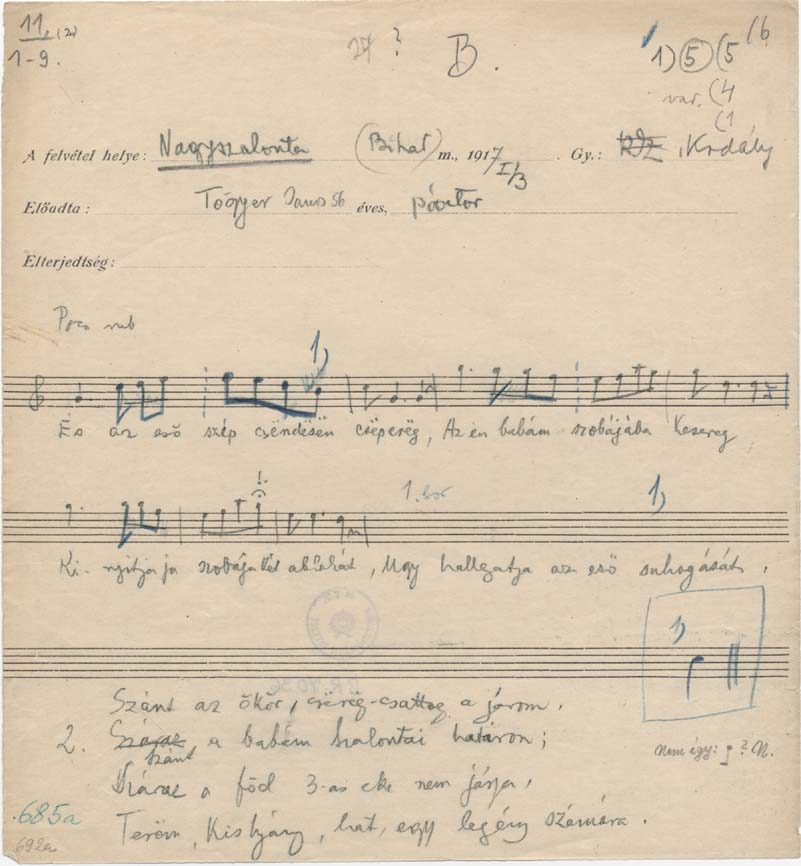 11. (2.)
1-9.
?
B.
1) 5 (5
/6
var. (4
(1
A felvétel helye: Nagyszalonta (Bihar) m., 1917 I/3 Gy.: Kodály
Előadta: János 56 éves, pásztor
Elterjedtség:
Poco rub
1)
És az eső szép csëndësën csëpërëg, Az én babám szobájába Kesereg
1. sor
1)
Ki-nyitja ja szobája két ablakát, Ugy hallgatja az eső suhogását,
1)
Szánt az ökör, csërëg-csattog a járom,
2. Száraz szánt a babám szalontai határon;
Száraz a föd 3-as eke nem járja,
Teröm, Kislyány, hat, egy legény számára.
Nem így: ? N.
685a
692a